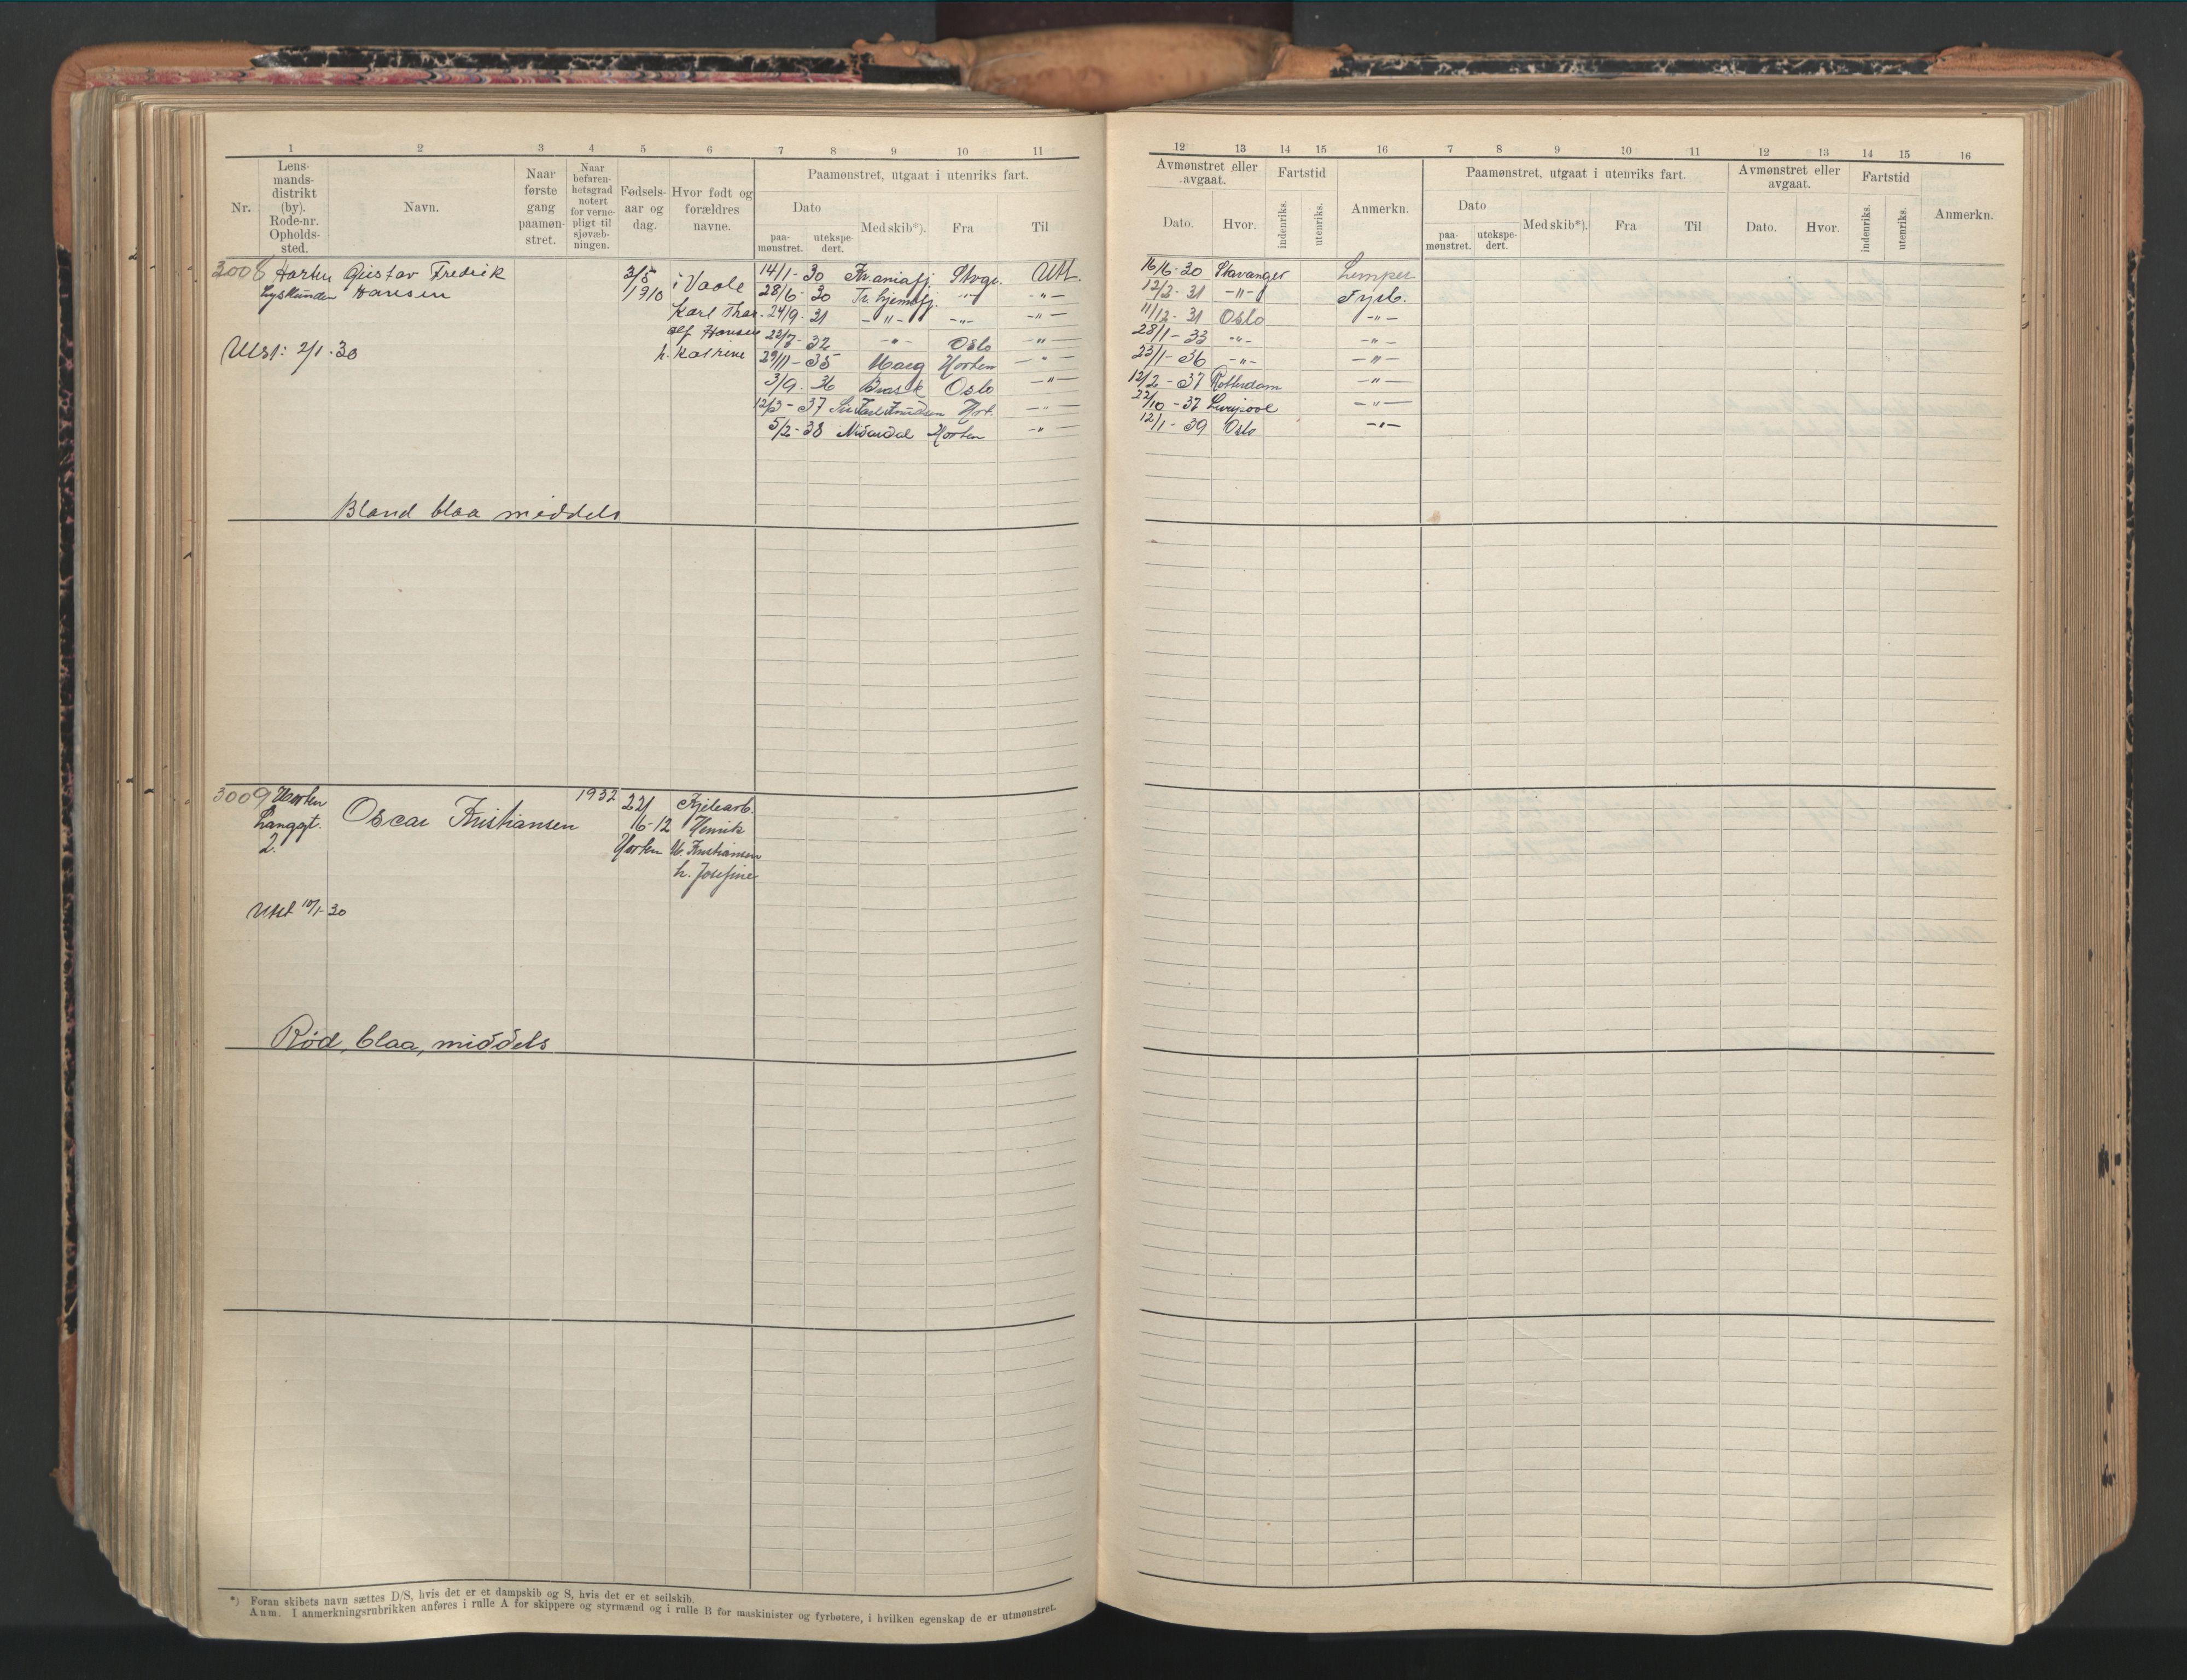 1 2 3 4 5 6 7 8 9 10 11
Nr.
Lens-
mands-
distrikt
(by).
Rode-nr.
Opholds-
sted.
Navn.
Naar
første
gang
paamøn-
stret.
Naar
befaren-
hetsgrad
notert
for verne-
pligt til
sjøvæb-
ningen.
Fødsels-
aar og
dag.
Hvor født og
forældres
navne.
Paamønstret, utgaat i utenriks fart.
Dato
paa-
mønstret.
utekspe-
dert.
Med skib*).
Fra
Til
3008 Horten Gustav Fredrik 3/5 i Vaale 14/1-30 Kr.aniafj. Stvgr. Utl.
Hansen 1910 28/6-30 Tr.hjemsfj. -"- -"-
Karl Thor- 24/9-31 -"- -"- -"-
olf Hansen 22/7-32 -"- Oslo -"-
Utst: 2/1-30 h. Katrine 29/11-35 Horten -"-
3/9-36 Brask Oslo -"-
12/3-37 Hort. -"-
5/2-38 Mosdal Horten -"-
Blond blaa middels
3009 Horten Oscar Kristiansen 1932 22/ Kjelearb.
Langgt. 6-12 Henrik
2. Horten M. Kristiansen
h. Josefine
Utst 10/1-30
Rød, blaa, middels
*) Foran skibets navn sættes D/S, hvis det er et dampskib og S, hvis det er et seilskib.
Anm. I anmerkningsrubrikken anføres i rulle A for skippere og styrmænd og i rulle B for maskinister og fyrbøtere, i hvilken egenskap de er utmønstret.
12 13 14 15 16 7 8 9 10 11 12 13 14 15 16
Avmønstret eller
avgaat.
Dato.
Hvor.
Fartstid
indenriks.
utenriks.
Anmerkn.
Paamønstret, utgaat i utenriks fart.
Dato
paa-
mønstret.
utekspe-
dert.
Med skib*).
Fra
Til
Avmønstret eller
avgaat.
Dato.
Hvor.
Fartstid
indenriks.
utenriks.
Anmerkn.
16/6-30 Stavanger Lemper
12/2-31 -"- Fyrb.
11/12-31 Oslo -"-
28/1-33 -"- -"-
23/1-36 -"- -"-
12/2-37 Rotterdam -"-
22/10-37 Liverpool -"-
12/1-39 Oslo -"-